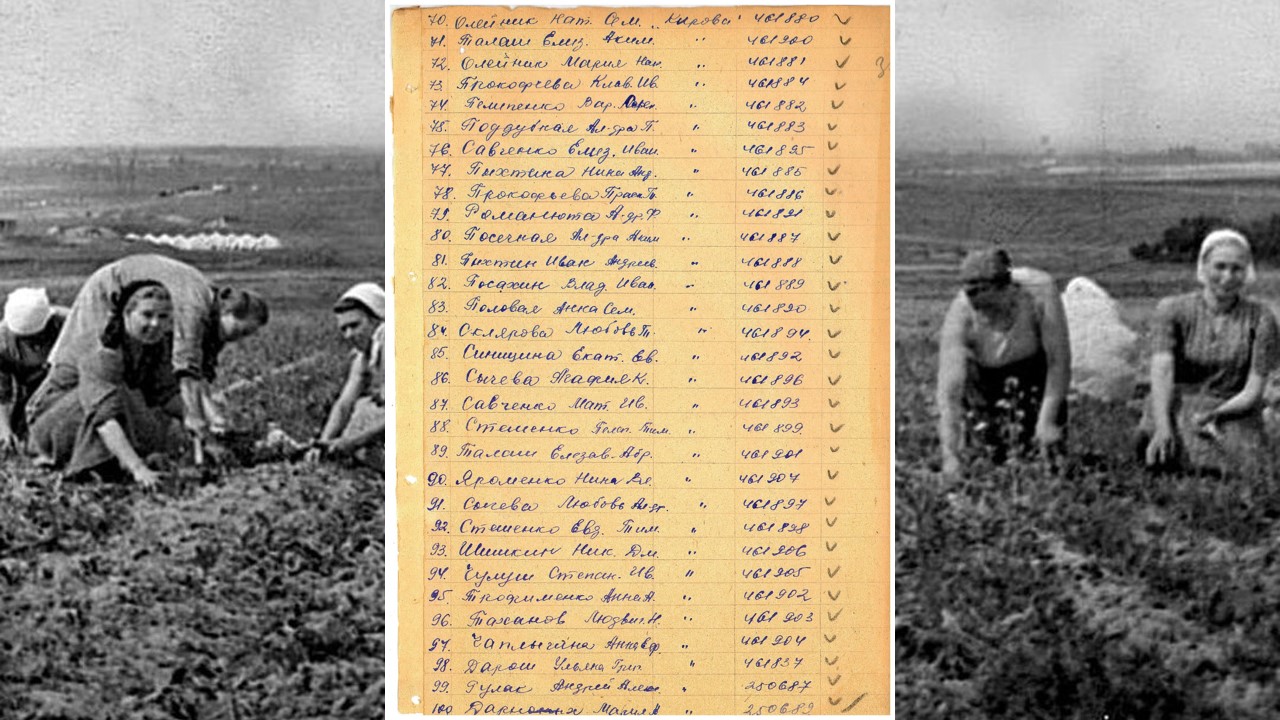 70. Олейник Нат. Сем. „Кирова" 461880 ✓
71. Талаш Елиз. Аким. " 461900 ✓
72. Олейник Мария " 461881 ✓
73. Прокофьева Клав. Ив. " 461884 ✓
74. Вар. " 461882 ✓
75. Поддубная Ал-дра П. " 461883 ✓
76. Савченко Елиз. Иван. " 461895 ✓
77. Пихтина Нина Анд. " 461885 ✓
78. Прокофьева " 461886 ✓
79. Романюта А-др. Ф. " 461891 ✓
80. Посечная Ал-дра Аким " 461887 ✓
81. Пихтин Иван Андреев. " 461888 ✓
82. Посахин Влад. Иван. " 461889 ✓
83. Половая Анна Сем. " 461890 ✓
84. Склярова Любовь " 461894. ✓
85. Синицина Екат. Ев. " 461892 ✓
86. Сычева Агафия К. " 461896 ✓
87. Савченко Мат. Ив. " 461893 ✓
88. Стешенко Тим. " 461899. ✓
89. Талаш Елизав. Абр. " 461901 ✓
90. Яроменко Нина " 461907 ✓
91. Сычева Любовь " 461897 ✓
92. Стешенко Евг. Тим. " 461898 ✓
93. Шишкин Ник. Дм. " 461906 ✓
94. Чулуш Степан. Ив. " 461905 ✓
95. Трофименко Анна А. " 461902 ✓
96. Таханов Людвиг Н. " 461903 ✓
97. Чаплыгина Анна " 461904 ✓
98. Дарош Ульяна Григ. " 461837 ✓
99. Гулак Андрей Алек. " 250687 ✓
100 Мария " 250689 ✓